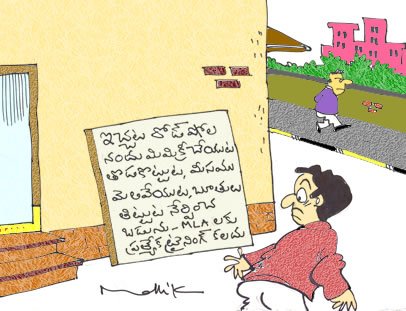 ఇచ్చట రోడ్ షోల
నందు మిమిక్రీ చేయుట
తొడకొట్టుట, మీసము
మెలివేయుట, బూతులు
తిట్టుట నేర్పించ
బడును - MLA లకు
ప్రత్యేక ట్రైనింగ్ కలదు
Mallik